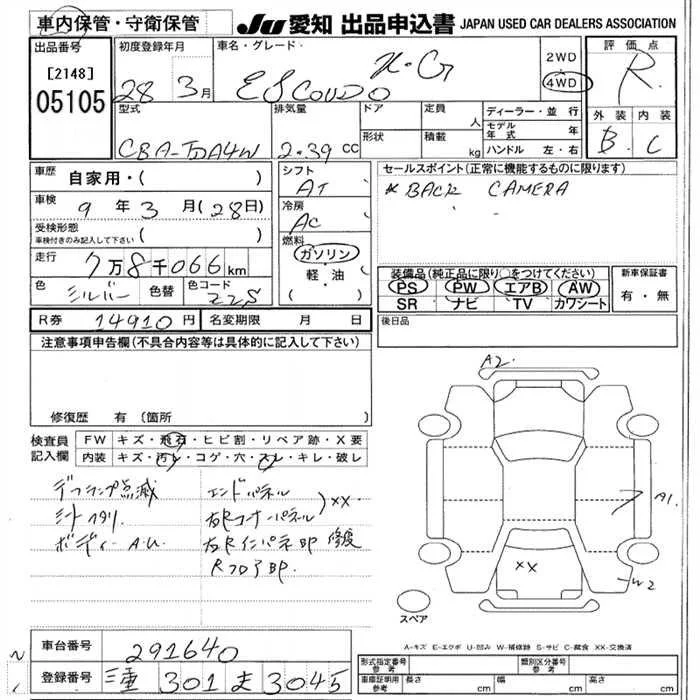 車内保管・守衛保管
JU 愛知 出品申込書 JAPAN USED CAR DEALERS ASSOCIATION
出品番号 初度登録年月 車名・グレード 2WD 評価点
[2148] 28 3月 ESCOUDO X・G 4WD R
05105
型式 排気量 ドア 定員 人 ディーラー・並行 外装 内装
CBA-TDA4W 2.39 cc 形状 積載 kg モデル年式 年 B C
ハンドル 左・右
車歴 自家用・( ) シフト AT セールスポイント(正常に機能するものに限ります)
車検 9年3月(28日) 冷房 AC * BACK CAMERA
受検形態
車検付きのみ記入して下さい ( ) 燃料
走行 7万8千066km ガソリン 装備品(純正品に限り○をつけてください) 新車保証書
色 シルバー 色替 色コード Z2S 軽・油 PS PW エアB AW 有・無
SR ナビ TV カワシート
R券 14910円 名変期限 月 日 後日品
注意事項申告欄(不具合内容等は具体的に記入して下さい)
A2.
修復歴 有 (箇所
検査員 FW キズ・飛石・ヒビ割・リペア跡・X要
記入欄 内装 キズ・汚レ・コゲ・穴・スレ・キレ・破レ
デフランプ点滅 エンドパネル
シートヘタリ 右Rコーナーパネル )XX A1.
ボディーA.U. 右Rインパネ部 修復
Rフロア部. XX W2
スペア
A-キズ E-エクボ U-凹み W-補修跡 S-サビ C-腐食 XX-交換済
車台番号 291640
登録番号 三重 301 ま 3045
型式指定番号 参考 類別区分番号 参考
車庫証明用 参考 長さ cm 幅 cm 高さ cm